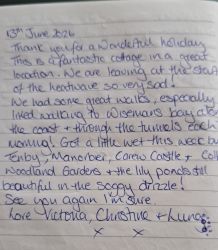 13th June 2026
Thank you for a Wonderful holiday
This is a fantastic cottage in a great
location. We are leaving at the start
of the heatwave so very sad!
We had some great walks, especially
liked walking to Wisemans bay along
the coast + through the tunnels each
morning! Got a little wet this week but
Tenby, Manorbier, Carew Castle +
Woodland Gardens + the lily ponds still
beautiful in the soggy drizzle!
See you again I'm sure
Love Victoria, Christine +
x x